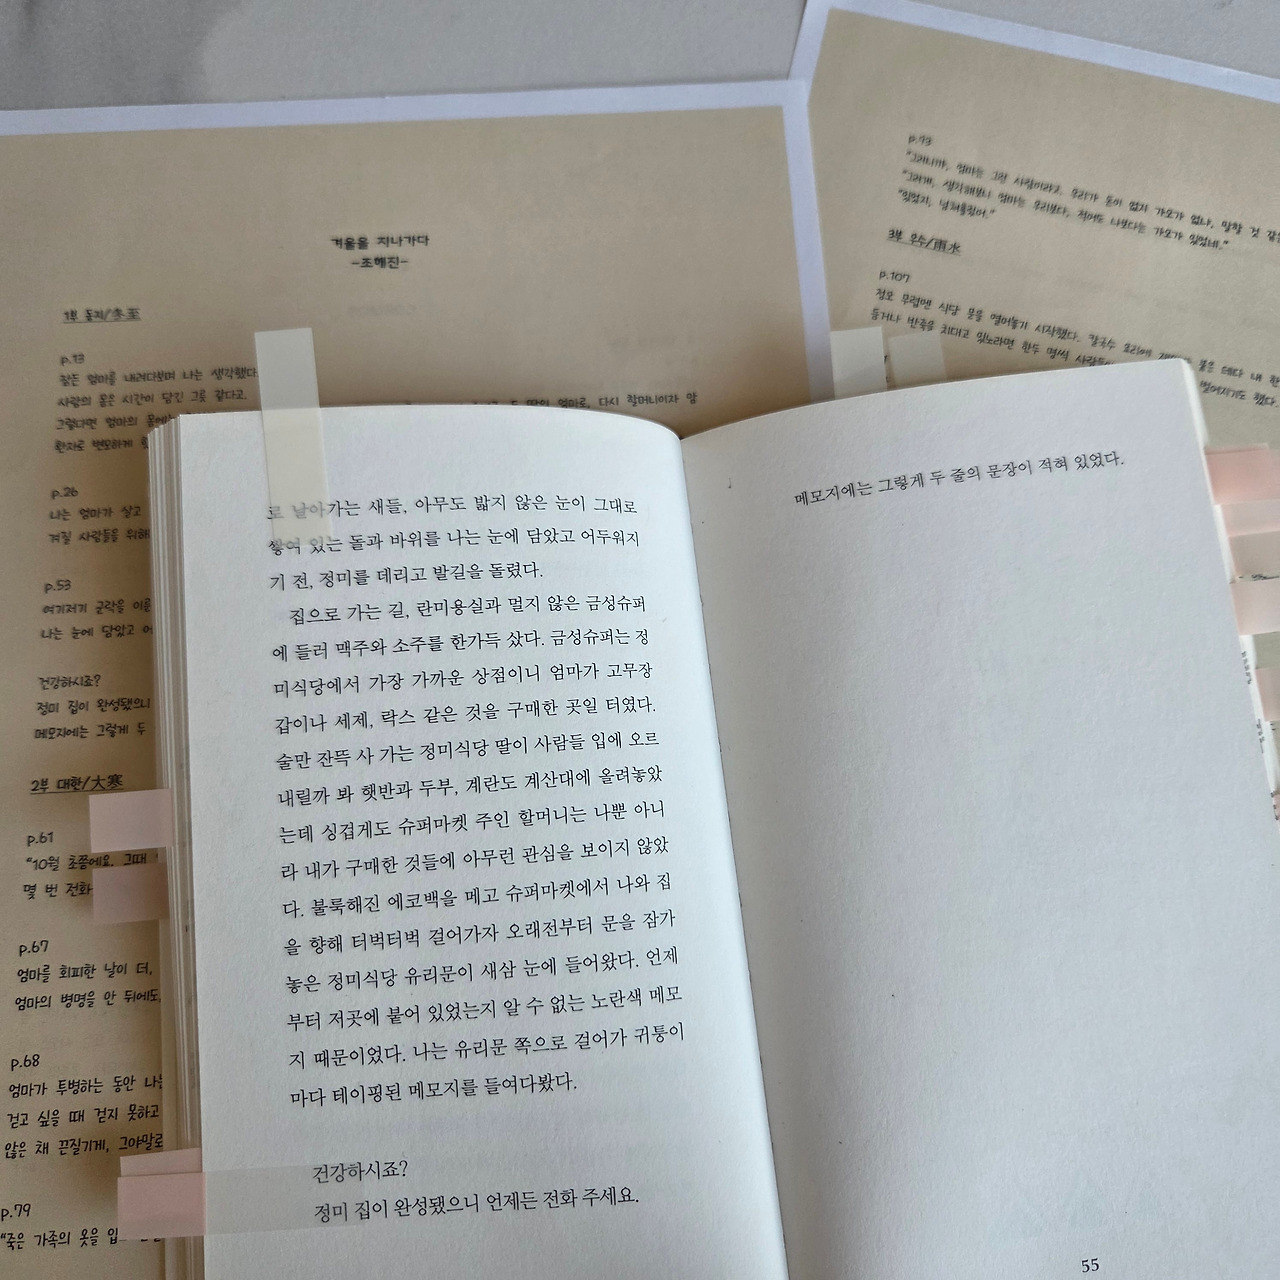 겨울을 지나가다
-조해진-
1부 동지/冬至
p.13
잠든 엄마를 내려다보며 나는 생각했다.
사람의 몸은 시간이 담긴 그릇 같다고.
그렇다면 엄마의 몸에는
두 딸의 엄마로, 다시 할머니이자 암
환자로 변모하게
p.26
나는 엄마가 살고
겨질 사람들을 위해
p.53
여기저기 균락을 이룬
나는 눈에 담았고 어
건강하시죠?
정미 집이 완성됐으니
메모지에는 그렇게 두
2부 대한/大寒
p.61
"10월 초쯤에요. 그때
몇 번 전화
p.67
엄마를 회피한 날이 더,
엄마의 병명을 안 뒤에도,
p.68
엄마가 투병하는 동안 나는
걷고 싶을 때 걷지 못하고
않은 채 끈질기게, 그야말로
p.79
"죽은 가족의 옷을 입
p.93
"그러니까, 엄마는 그런 사람이라고. 우리가 돈이 없지 가오가 없나, 말할 것 같은
"그러게, 생각해보니 엄마는 우리보다, 적어도 나보다는 가오가 있었네."
"있었지, 넘쳐흘렀어."
3부 우수/雨水
p.107
정오 무렵엔 식당 문을 열어놓기 시작했다. 칼국수 요리에
듬거나 반죽을 치대고 있노라면 한두 명씩 사람들
붙은 데다 내 환
벌어지기도 했다.
로 날아가는 새들, 아무도 밟지 않은 눈이 그대로
쌓여 있는 돌과 바위를 나는 눈에 담았고 어두워지
기 전, 정미를 데리고 발길을 돌렸다.
집으로 가는 길, 란미용실과 멀지 않은 금성슈퍼
에 들러 맥주와 소주를 한가득 샀다. 금성슈퍼는 정
미식당에서 가장 가까운 상점이니 엄마가 고무장
갑이나 세제, 락스 같은 것을 구매한 곳일 터였다.
술만 잔뜩 사 가는 정미식당 딸이 사람들 입에 오르
내릴까 봐 햇반과 두부, 계란도 계산대에 올려놓았
는데 싱겁게도 슈퍼마켓 주인 할머니는 나뿐 아니
라 내가 구매한 것들에 아무런 관심을 보이지 않았
다. 불룩해진 에코백을 메고 슈퍼마켓에서 나와 집
을 향해 터벅터벅 걸어가자 오래전부터 문을 잠가
놓은 정미식당 유리문이 새삼 눈에 들어왔다. 언제
부터 저곳에 붙어 있었는지 알 수 없는 노란색 메모
지 때문이었다. 나는 유리문 쪽으로 걸어가 귀퉁이
마다 테이핑된 메모지를 들여다봤다.
건강하시죠?
정미 집이 완성됐으니 언제든 전화 주세요.
메모지에는 그렇게 두 줄의 문장이 적혀 있었다.
55